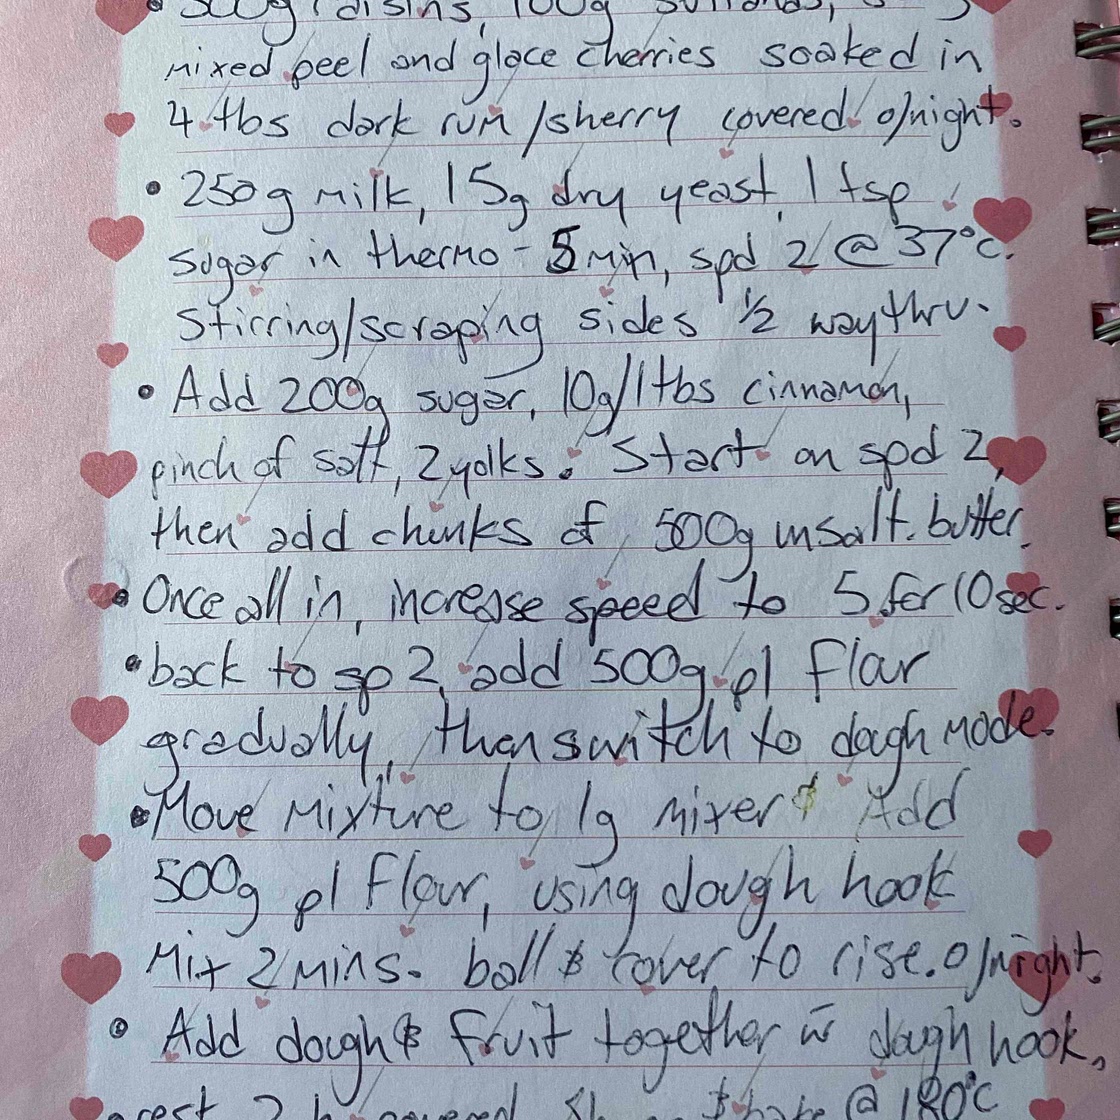 500g raisins, 100g sultanas,
mixed peel and glace cherries soaked in
4 tbs dark rum/sherry covered o/night.
• 250g milk, 15g dry yeast, 1 tsp
sugar in thermo - 5 min, spd 2 @ 37°c.
Stirring/scraping sides ½ way thru.
• Add 200g sugar, 10g/1tbs cinnamon,
pinch of salt, 2 yolks. Start on spd 2,
then add chunks of 500g unsalt. butter.
• Once all in, increase speed to 5 for 10 sec.
• back to sp 2, add 500g pl flour
gradually, then switch to dough mode.
• Move mixture to lg mixer & Add
500g pl flour, using dough hook
Mix 2 mins. ball & cover to rise. o/night.
• Add dough & fruit together w dough hook,
rest 2 h covered. & bake @ 180°c